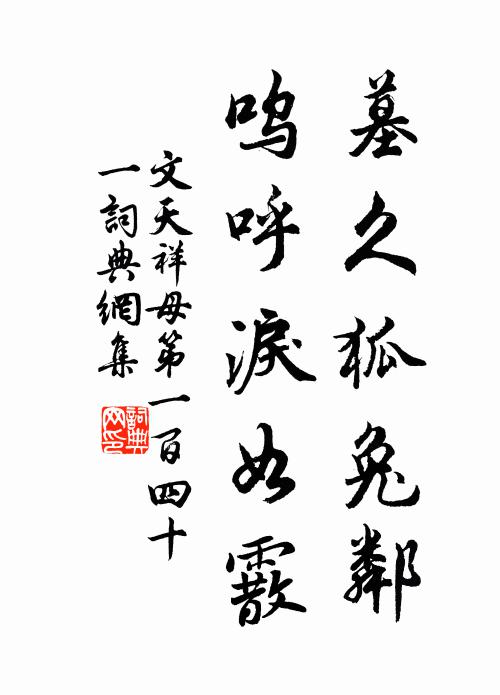 墓久狐兔鄰
嗚呼淚如霰
文天祥母第一百四十
一詞典網集
詞典网印